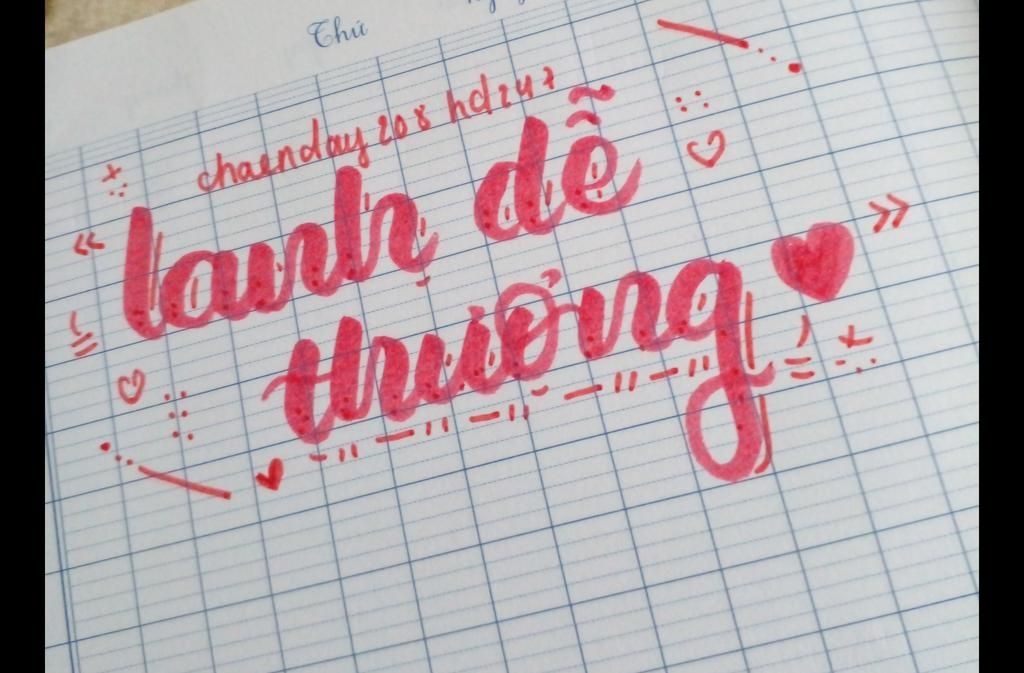 Thứ
chaenday 208 hd247
« lanh dễ
thương ♥ »